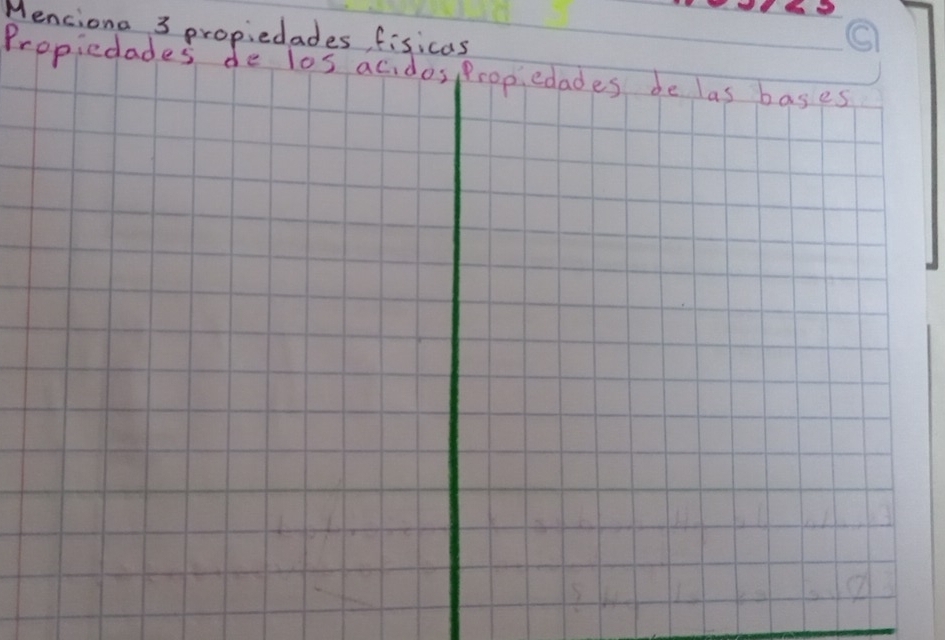 Menciona 3 propiedades físicas
Propiedades de los acidos Propiedades de las bases
C